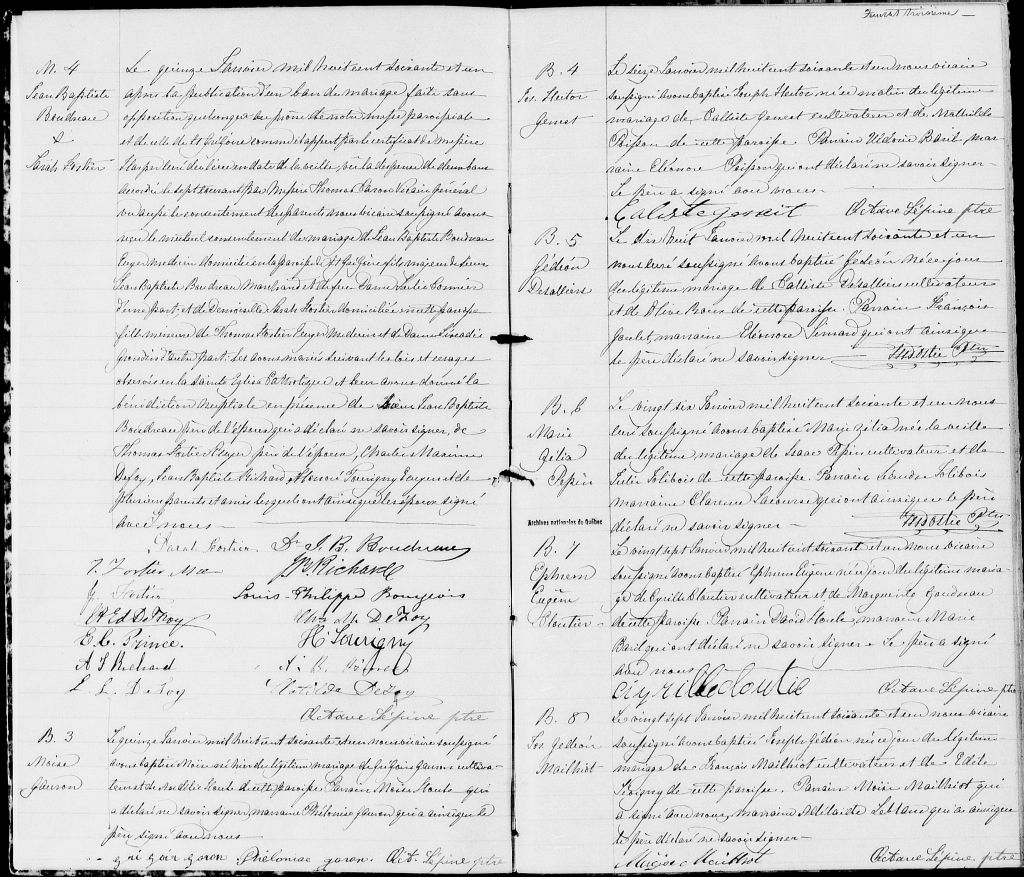 M. 4
Jean Baptiste
Boudreau
&
Sarah Fortier
Le quinze Janvier mil huit cent soixante et un
après la publication d'un ban de mariage faite sans
opposition quelconque au prône de notre messe paroissiale
et de celle de St Grégoire comme il appert par le certificat de Messire
Harper en date de la veille, vu la dispense de deux bans
accordée le sept courant par Messire Thomas Caron Vicaire général
vu aussi le consentement des parents nous vicaire soussigné avons
reçu le mutuel consentement de mariage de Jean Baptiste Boudreau
Ecuyer médecin domicilié en la paroisse de St Grégoire fils majeur de Sieur
Jean Baptiste Boudreau Marchand et de feu Dame Julie
d'une part, et de Demoiselle Sarah Fortier domiciliée en cette paroisse
fille mineure de Thomas Fortier Ecuyer Médecin et de Dame Leocadie
d'autre part. Les avons mariés suivant les lois et usages
observés en la sainte Eglise Catholique et leur avons donné la
bénédiction nuptiale en présence de Sieur Jean Baptiste
Boudreau père de l'époux qui a déclaré ne savoir signer, de
Thomas Fortier Ecuyer père de l'épouse, Charles Maxime
DeFoy, Jean Baptiste Richard, Honoré Tourigny Ecuyers et de
plusieurs parents et amis lesquels ont ainsi que les époux signé
avec nous
Sarah Fortier. Dr J. B. Boudreau
T. Fortier M JB Richard
Fortier Louis-Philippe Bourgeois
DeFoy Chs DeFoy
E. C. Prince. H Tourigny
A J Richard
L. L. DeFoy Clotilde DeFoy
Octave Lépine ptre
B. 3
Moise
Gauron
Le quinze Janvier mil huit cent soixante et un nous vicaire soussigné
avons baptisé Moise né hier du légitime mariage de Grégoire Gauron cultiva-
teur et de Aurélie Houle de cette paroisse. Parrain Moise Houle qui
a déclaré ne savoir signer, marraine Philomise Gauron qui a ainsi que le
père signé avec nous
gri goir goron Philomise goron. Oct. Lépine ptre
Feuillet troisième
B. 4
Jos. Hector
Genest
Le seize Janvier mil huit cent soixante et un nous vicaire
soussigné avons baptisé Joseph Hector né ce matin du légitime
mariage de Calliste Genest cultivateur et de Mathilde
Poisson de cette paroisse. Parrain Uldoric Baril mar-
raine Eléonore Poisson qui ont déclaré ne savoir signer
Le père a signé avec nous
Caliste genait Octave Lépine ptre
B. 5
Gédéon
Desalliers
Le dix huit Janvier mil huit cent soixante et un
nous curé soussigné avons baptisé Gedeon né ce jour
du légitime mariage de Calliste Desalliers cultivateur
et de Olive Bourk de cette paroisse. Parrain François
Goulet, marraine Eléonore Simard qui ont ainsi que
le père déclaré ne savoir signer
B. 6
Marie
Zélia
Pepin
Le vingt six Janvier mil huit cent soixante et un nous
curé soussigné avons baptisé Marie Zélia née la veille
du légitime mariage de Isaac Pepin cultivateur et de
Julie Jolibois de cette paroisse. Parrain Jolibois
marraine Clarisse Lacourse qui ont ainsi que le père
déclaré ne savoir signer
Archives nationales du Québec
B. 7
Ephrem
Eugène
Cloutier
Le vingt sept Janvier mil huit cent soixante et un nous vicaire
soussigné avons baptisé Ephrem Eugène né ce jour du légitime maria-
ge de Cyrille Cloutier cultivateur et de Marguerite Gaudreau
de cette paroisse. Parrain David Houle, marraine Marie
Baril qui ont déclaré ne savoir signer. Le père a signé
avec nous
Cyrille cloutie Octave Lépine ptre
B. 8
Jos. Gédéon
Mailhiot
Le vingt sept Janvier mil huit cent soixante et un nous vicaire
soussigné avons baptisé Joseph Gédéon né ce jour du légitime
mariage de François Mailhiot cultivateur et de Edile
Pigny de cette paroisse. Parrain Moise Mailhiot qui
a signé avec nous, marraine Adélaide Leblanc qui a ainsi que
le père déclaré ne savoir signer
Octave Lépine ptre